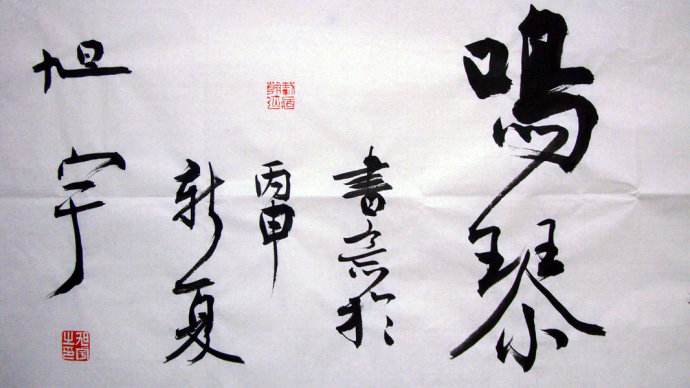 鳴琴
書於
丙申
新夏
旭宇
旭宇之印